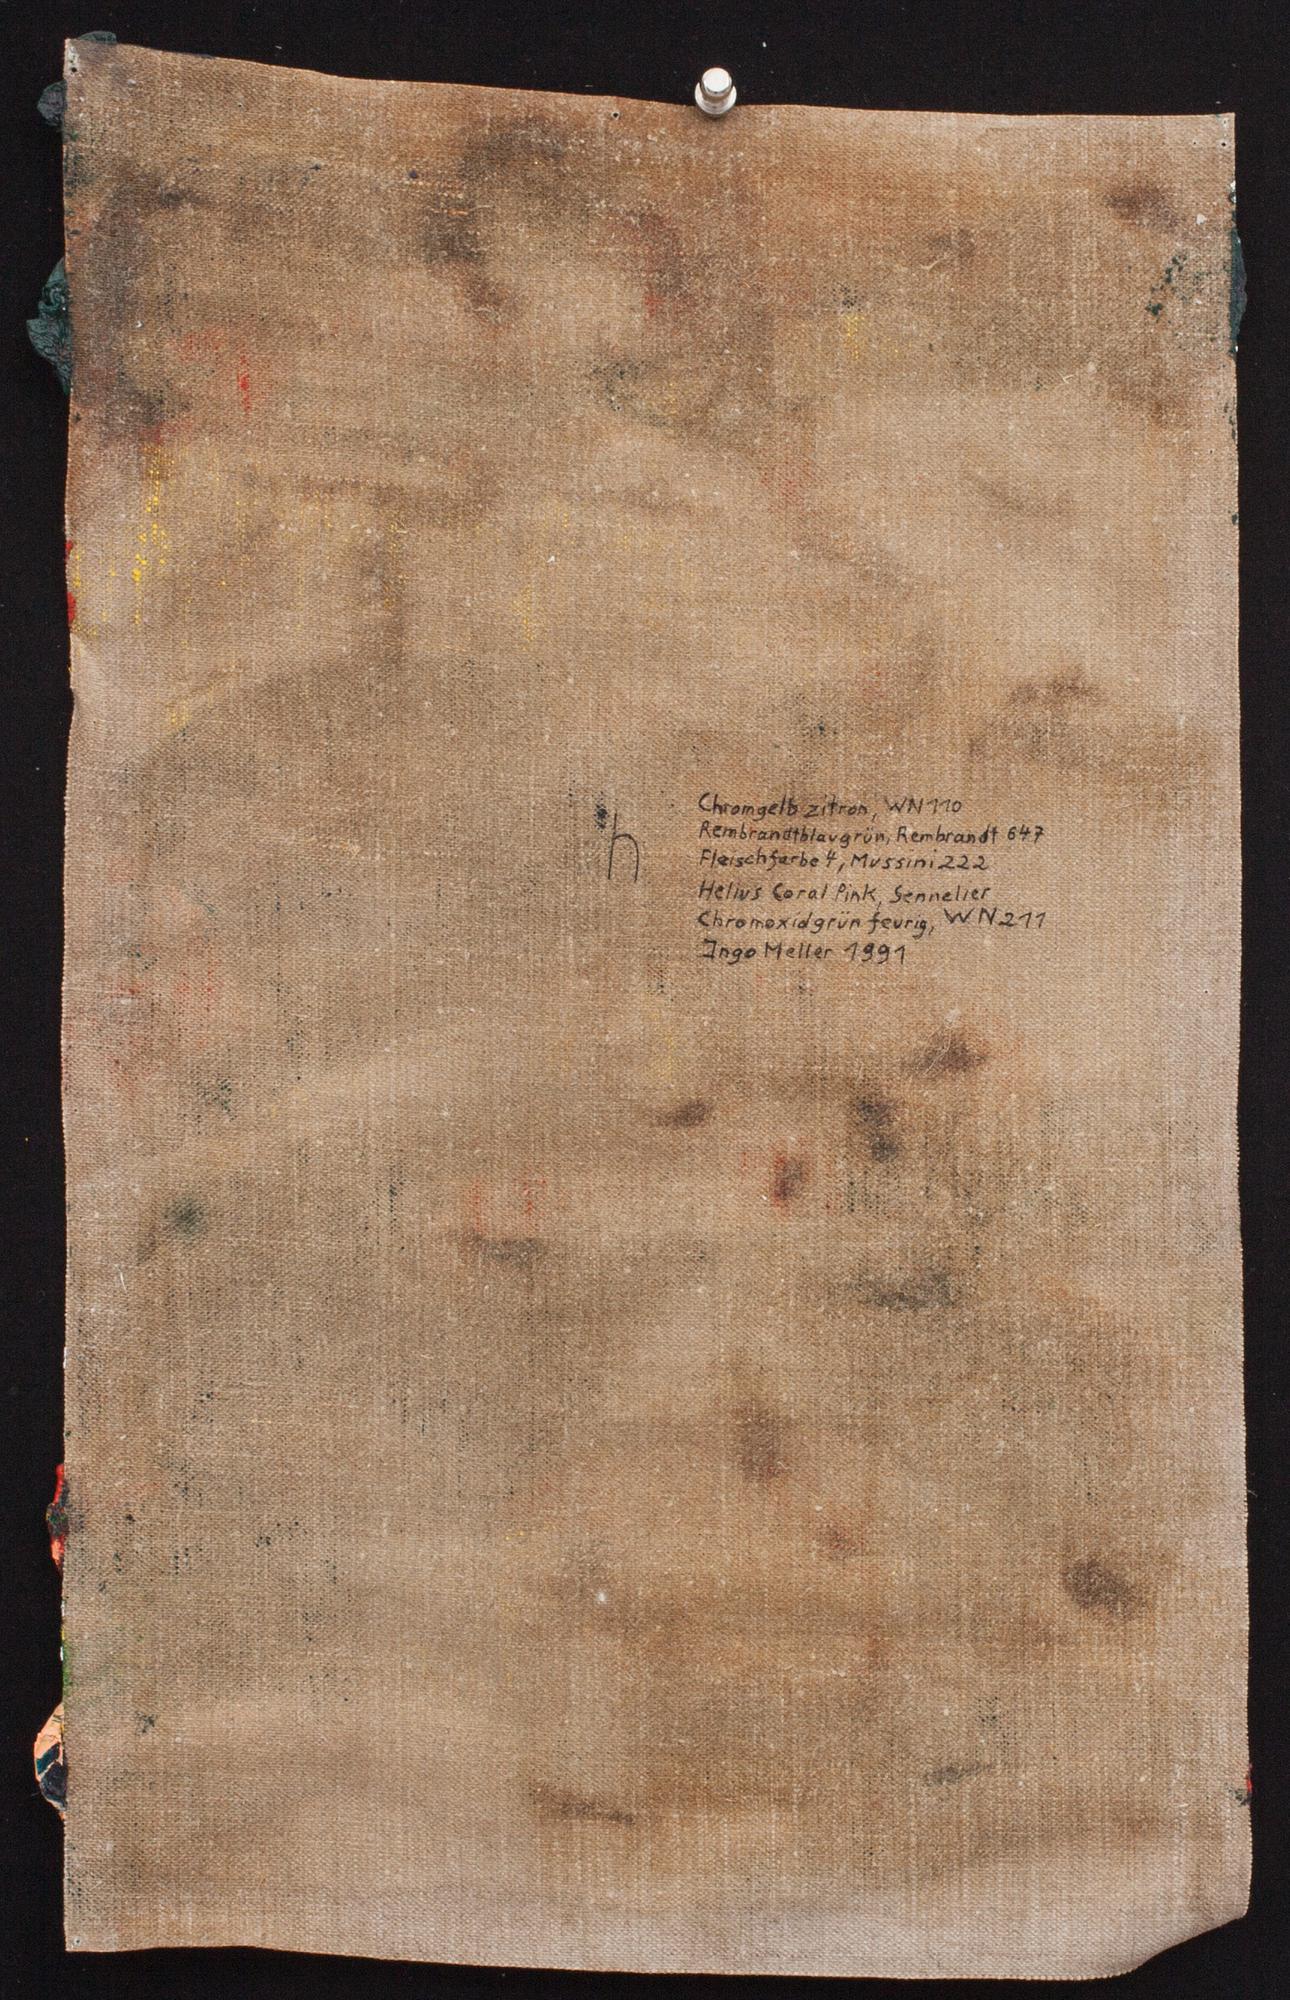 h
Chromgelb zitron, WN 110
Rembrandtblaugrün, Rembrandt 647
Fleischfarbe 4, Mussini 222
Helius Coral Pink, Sennelier
Chromoxidgrün feurig, WN 211
Ingo Meller 1991